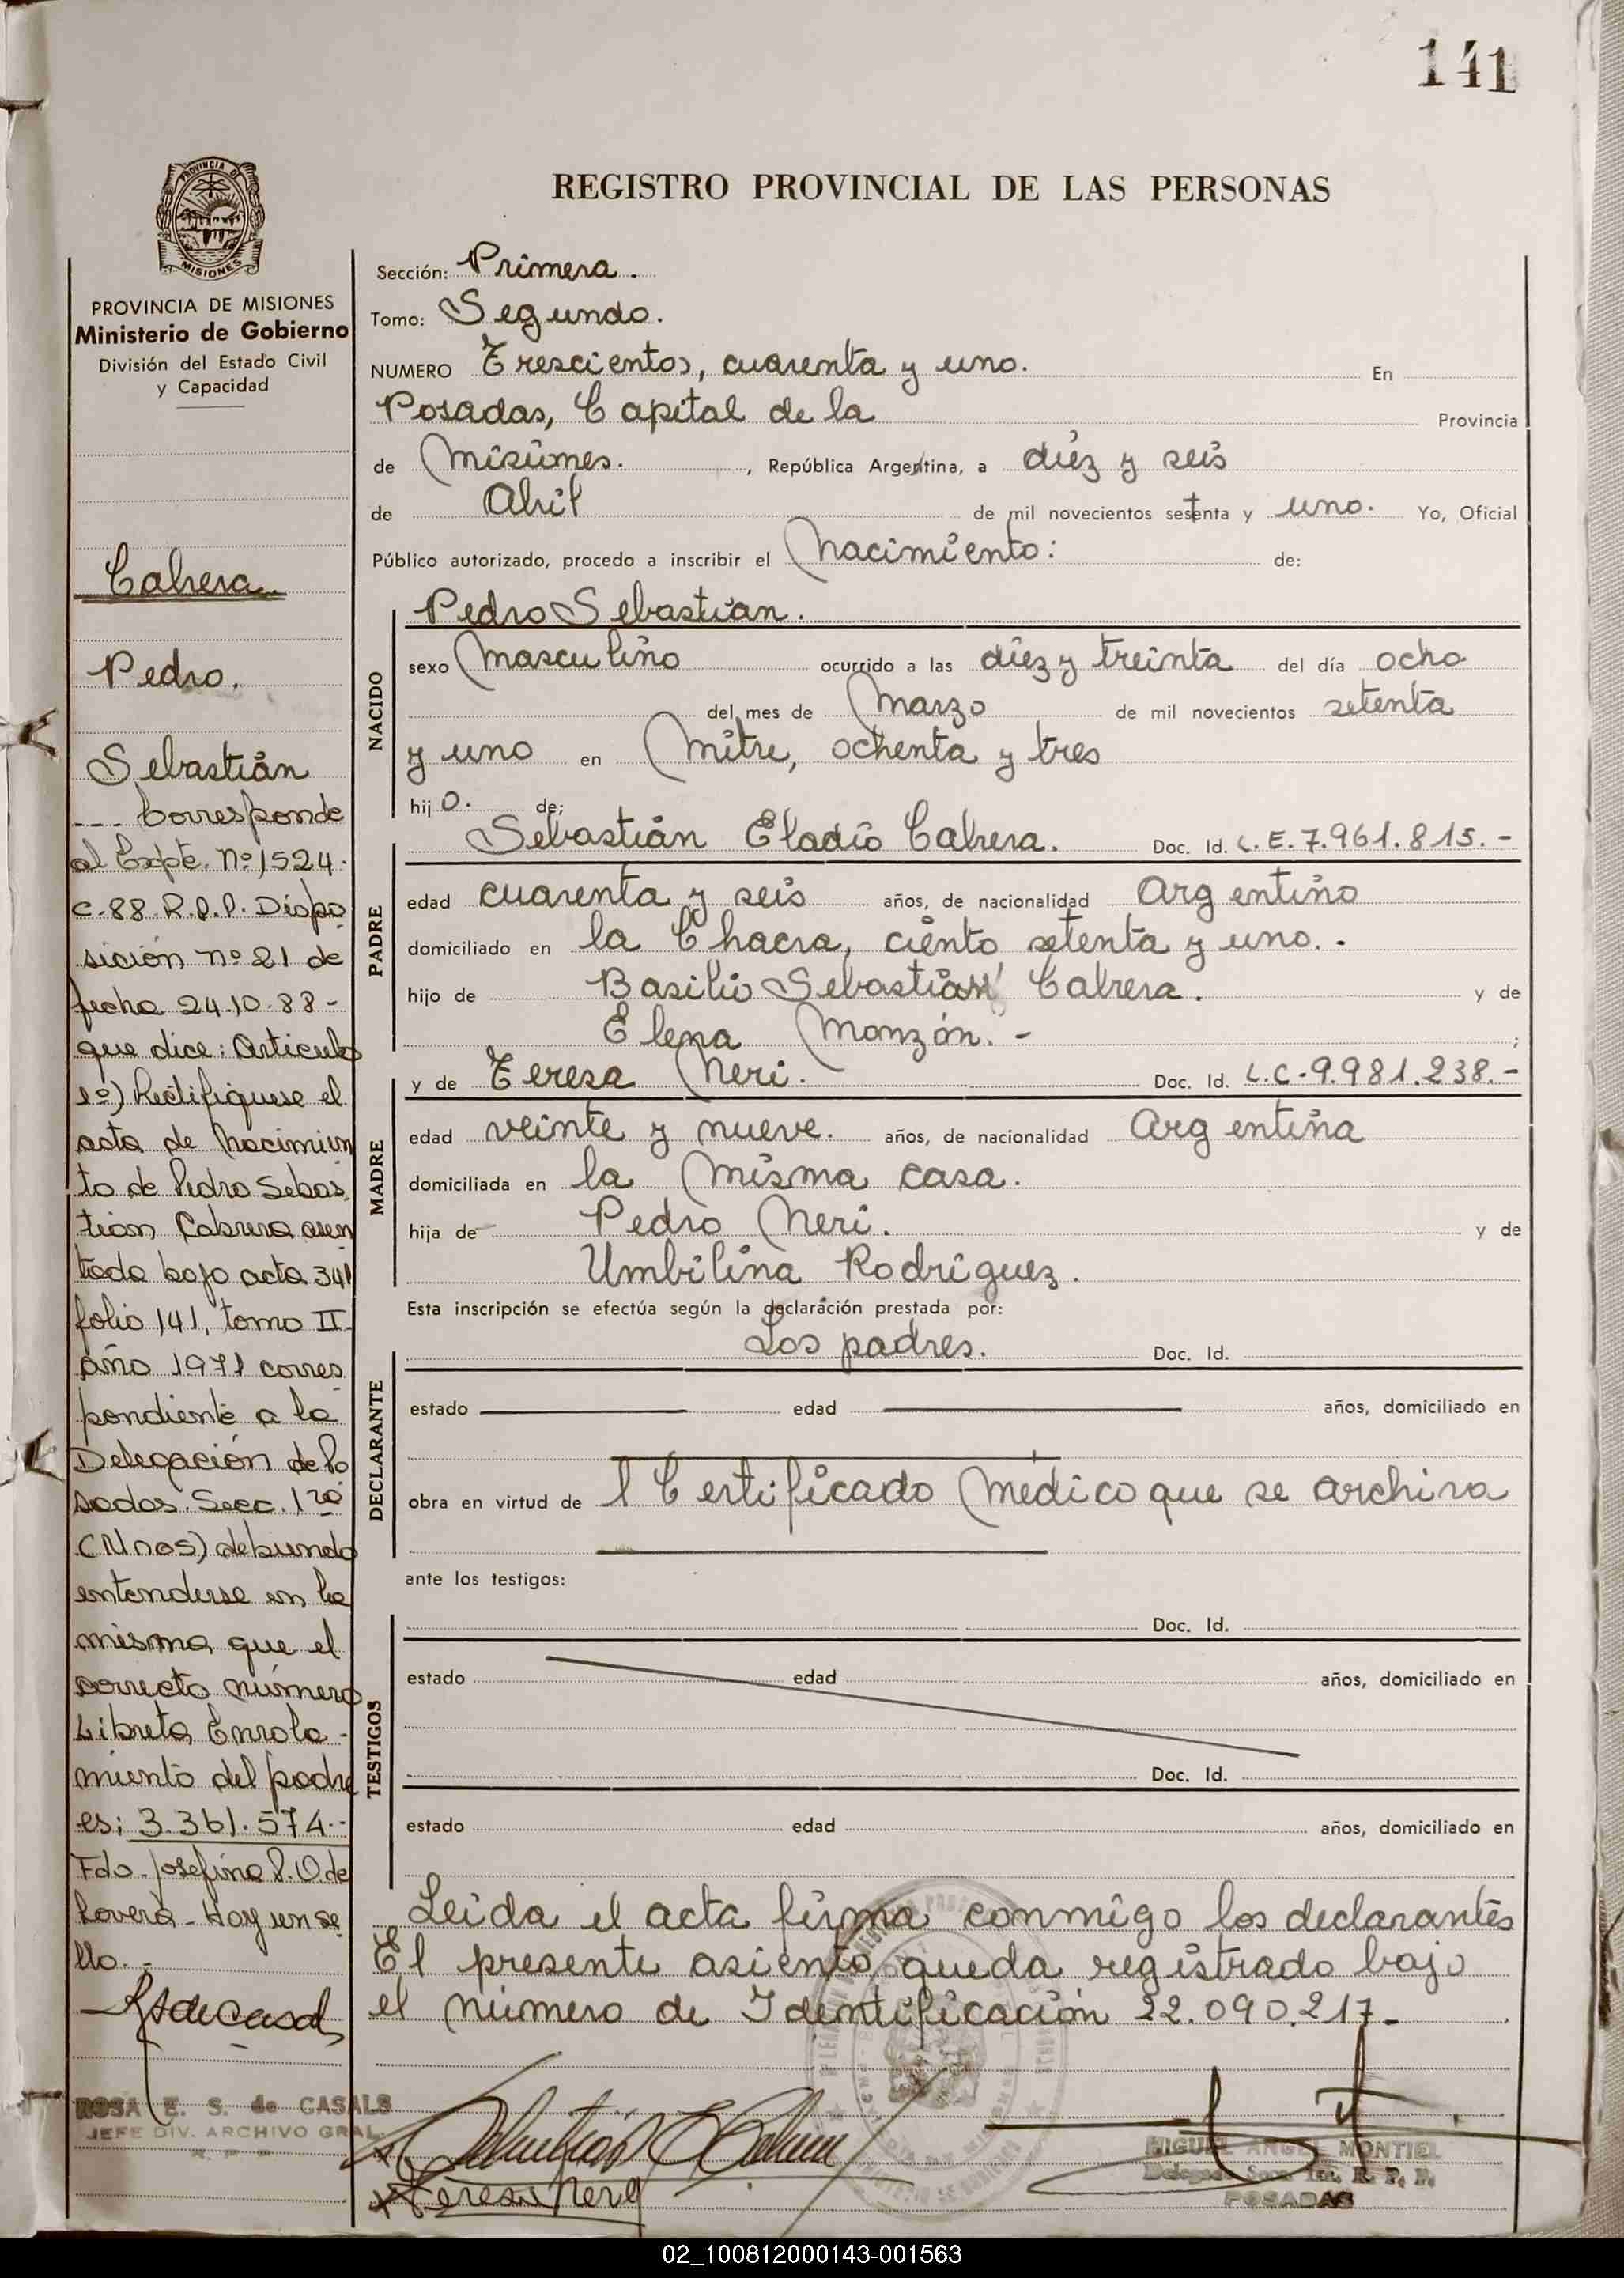 141
REGISTRO PROVINCIAL DE LAS PERSONAS
PROVINCIA DE
MISIONES
PROVINCIA DE MISIONES
Ministerio de Gobierno
División del Estado Civil
y Capacidad
Cabrera
Pedro.
Sebastián
--- Corresponde
al Expte. Nº 1524.
C-88 R.P.P. Dispo
sición nº 21 de
fecha 24.10.88-
que dice: Articulo
1º) Rectifiquese el
acta de Nacimien
to de Pedro Sebas
tian Cabrera asen
tada bajo acta 341
folio 141, tomo II-
año 1971 corres
pondiente a la
Delegación de Po
sadas. Secc. 1ra
debiendo
entenderse en la
misma que el
correcto número
Libreta Enrola-
miento del padre
es: 3.361.574.-
Fdo. Josefina P. O de
Lovera - Hay un se
llo.-
ROSA E. S. de CASALS
JEFE DIV. ARCHIVO GRAL.
R. P. P.
Sección: Primera.
Tomo: Segundo.
NUMERO Trescientos, cuarenta y uno. En
Posadas, Capital de la Provincia
de Misiones. , República Argentina, a diez y seis
de Abril de mil novecientos setenta y uno. Yo, Oficial
Público autorizado, procedo a inscribir el Nacimiento: de:
NACIDO
Pedro Sebastian.
sexo Masculino ocurrido a las diez y treinta del día ocho
del mes de Marzo de mil novecientos setenta
y uno en Mitre, ochenta y tres
hij o. de;
PADRE
Sebastián Eladio Cabrera. Doc. Id. L.E. 7.961.815.-
edad cuarenta y seis años, de nacionalidad Argentino
domiciliado en la Chacra, ciento setenta y uno.-
hijo de Basilio Sebastián Cabrera. y de
Elena Monzón.- ;
MADRE
y de Teresa Neri. Doc. Id. L.C-9.981.238.-
edad veinte y nueve. años, de nacionalidad Argentina
domiciliada en la misma casa.
hija de Pedro Neri. y de
Umbilina Rodríguez.
Esta inscripción se efectúa según la declaración prestada por:
DECLARANTE
Los padres. Doc. Id.
estado edad años, domiciliado en
obra en virtud de l Certificado Médico que se archiva
ante los testigos:
TESTIGOS
Doc. Id.
estado edad años, domiciliado en
Doc. Id.
estado edad años, domiciliado en
Leida el acta firma conmigo los declarantes
El presente asiento, queda registrado bajo
el número de Identificación 22.090.217.-
Teresa Neri
MIGUEL ANGEL MONTIEL
Delegado Secc. 1ra. R. P. P.
POSADAS
02_100812000143-001563